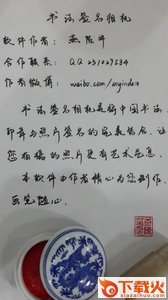 书法签名相机
软件作者：燕陈华
合作联系：QQ231029584
作者微博：weibo.com/myindex
书法签名相机是将中国书法、
印章与照片签名的完美结合，让
您拍摄的照片更有艺术气息。
本软件由作者精心为您制作，
画笔随心。
下载火
www.xiazaihuo.com